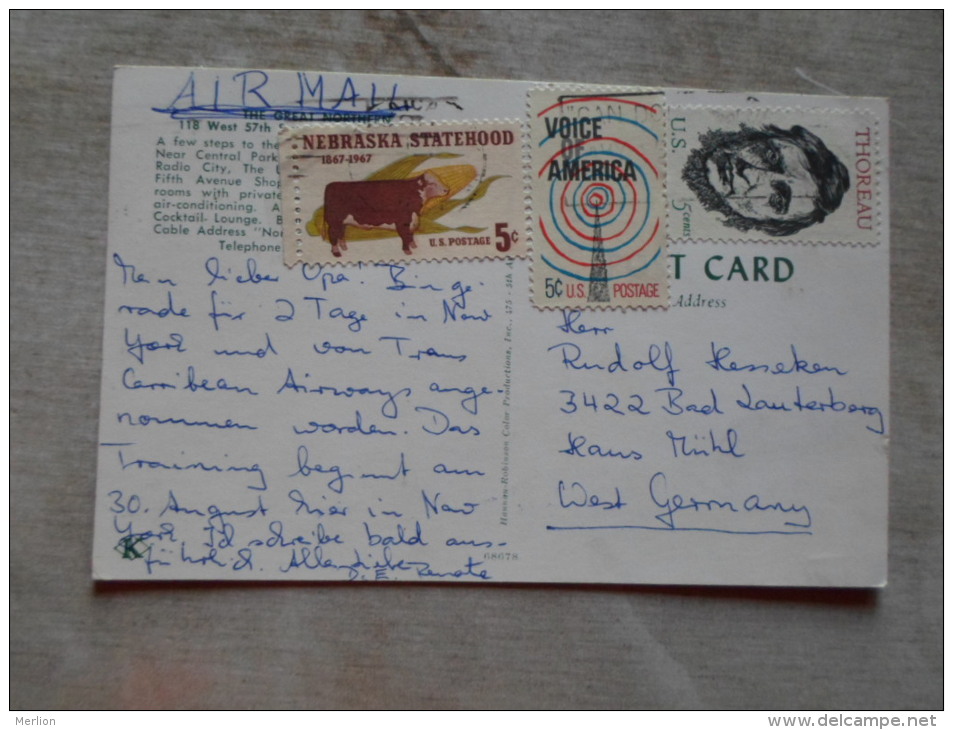 AIR MAIL
THE GREAT NORTHERN
118 West 57th
A few steps to the
Near Central Park
Radio City, The
Fifth Avenue Shop
rooms with private
air-conditioning. A
Cocktail Lounge. B
Cable Address "Nor
Telephone
NEBRASKA STATEHOOD
1867-1967
U.S. POSTAGE 5¢
"CAN DO
VOICE
OF
AMERICA
5¢ U.S. POSTAGE
U.S.
5 cents
THOREAU
T CARD
Address
Mein lieber Opa! Bin ge-
rade für 2 Tage in New
York und von Trans
Carribean Airways ange-
nommen worden. Das
Training beginnt am
30. August hier in New
York. Ich schreibe bald aus-
führlich. Alles Liebe
D. E. Renate
Hannau-Robinson Color Productions, Inc., 475 - 5th A
68678
K
Herr
Rudolf Hesseken
3422 Bad Lauterberg
Haus Mühl
West Germany
Merlion
http://www.delcampe.net